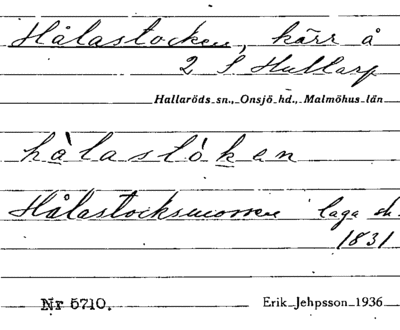 Hålastocken, kärr å
2 S Hultarp
Hallaröds sn., Onsjö hd., Malmöhus län
hàlastòken
Hålastocksmossen laga sk.
1831
Nr 5710. Erik Jehpsson 1936